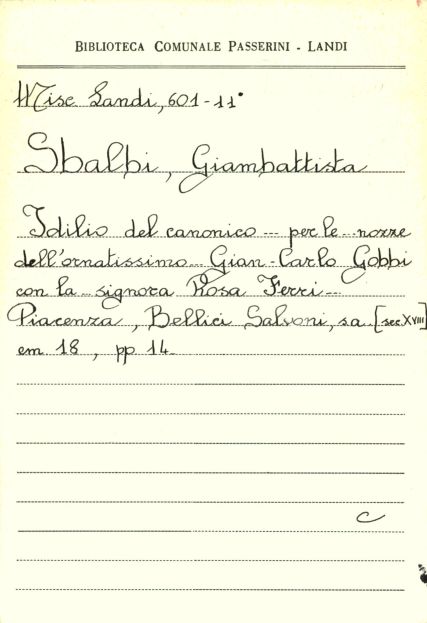 BIBLIOTECA COMUNALE PASSERINI - LANDI
Misc Landi, 601-11°
Sbalbi, Giambattista
Idilio del canonico --- per le --- nozze
dell'ornatissimo --- Gian-Carlo Gobbi
con la --- signora Rosa Ferri ---
Piacenza, Bellici Salvoni, s.a. [sec. XVIII]
cm 18, pp 14.
C